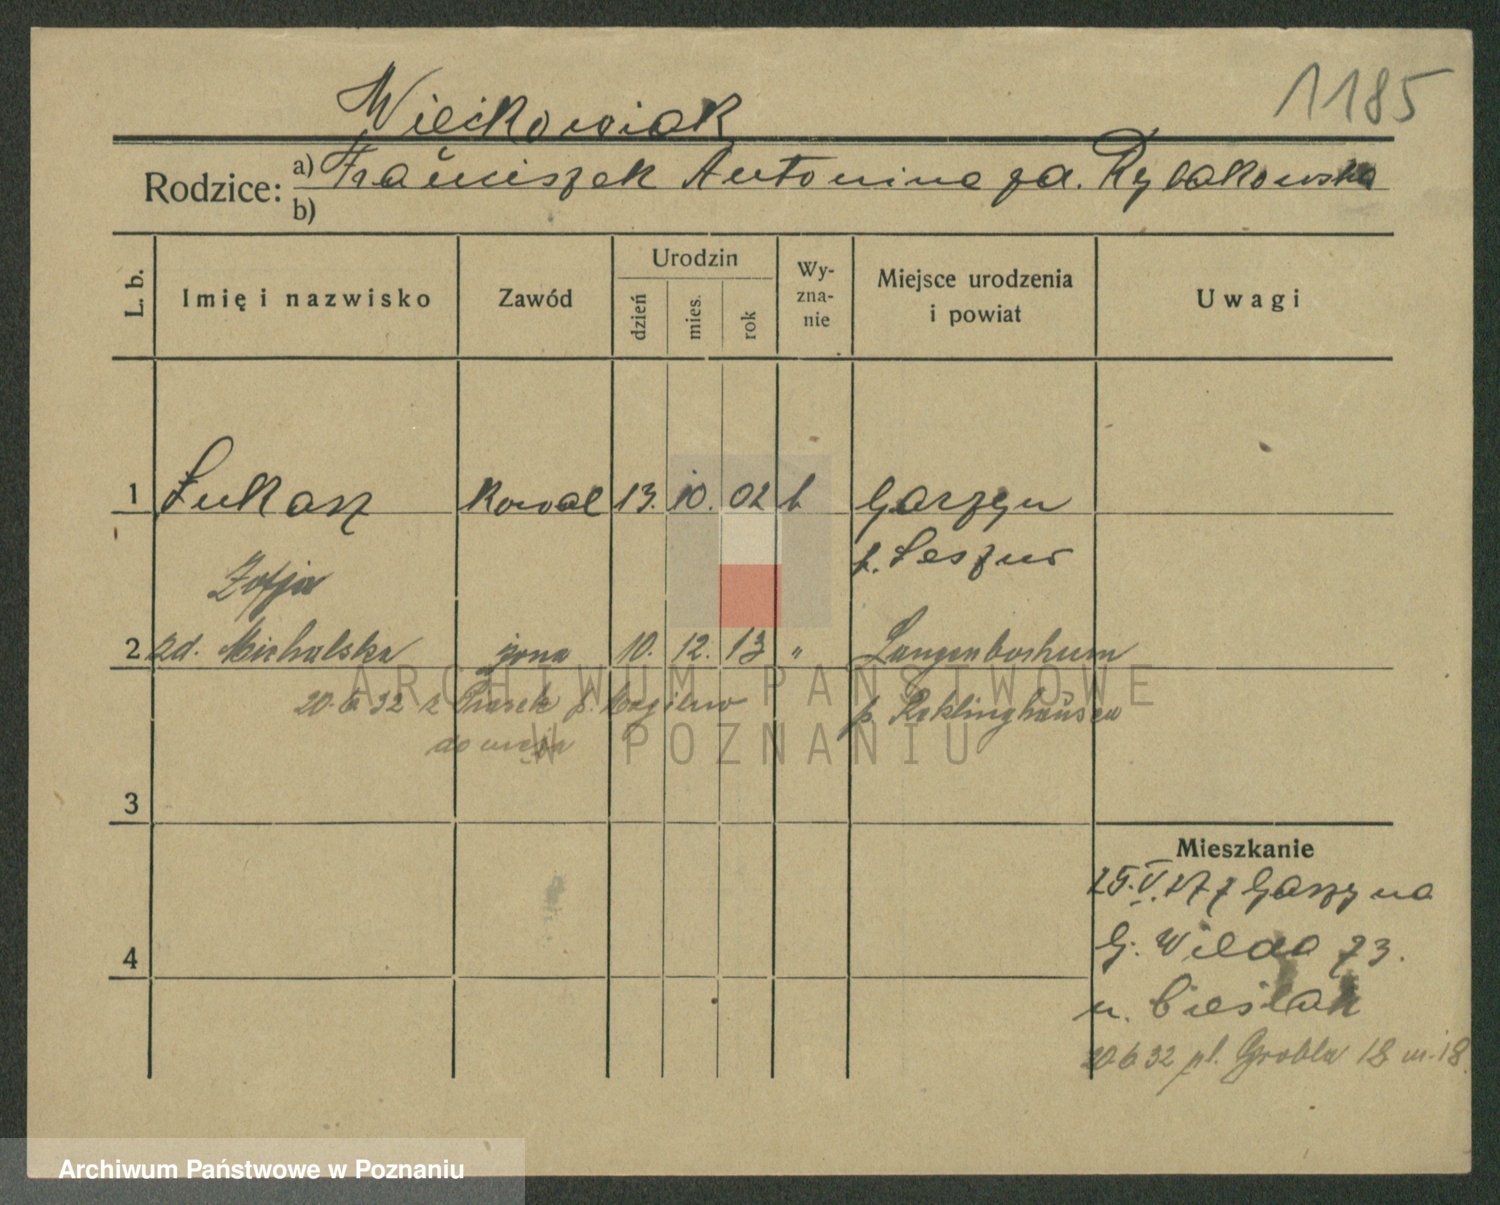 1185
Wieckowiak
Rodzice: a) Franciszek Antonina zd. Rybakowska
b)
L. b.
Imię i nazwisko
Zawód
Urodzin
dzień
mies.
rok
Wy-
zna-
nie
Miejsce urodzenia
i powiat
Uwagi
1 Łukasz kowal 13. 10. 02 k Garzyn
p. Leszno
Zofja
2 zd. Michalska żona 10. 12. 13 " Langenbochum
20.6.32 z p. Mogilno p. Reklinghausen
do męża
3
4
Mieszkanie
25.V.27 z Garzyna
G. Wilda 73.
u. Cieślak
20.6.32 pl. Grobla 18 m. 18
ARCHIWUM PAŃSTWOWE
W POZNANIU
Archiwum Państwowe w Poznaniu